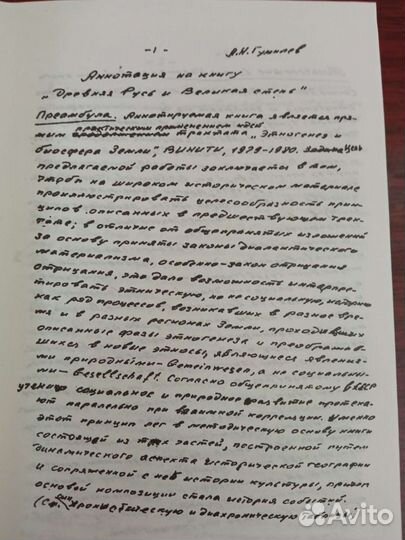 -1-
Л.Н. Гумилев
Аннотация на книгу
"Древняя Русь и Великая степь"
Преамбула. Аннотируемая книга является пря-
практическим применением идей
мым продолжением трактата "Этногенез и
биосфера Земли", ВИНИТИ, 1979-1980. Задача Цель
предлагаемой работы заключается в том,
чтобы на широком историческом материале
проиллюстрировать целесообразность прин-
ципов описанных в предшествующем трак-
тате; в отличие от общепринятых изложений
за основу приняты законы диалектического
материализма, особенно - закон отрицания
отрицания, это дало возможность интерпре-
тировать этническую, не социальную, историю
как ряд процессов, возникавших в разное вре-
мя и в разных регионах Земли, проходивших
описанные фазы этногенеза и преображав-
шихся в новые этносы, являющиеся явления-
ми природными - Gemeinwesen, а не социальны-
ми - Gesellschaft. Согласно общепринятому в СССР
учению социальное и природное развитие протека-
ют паралельно при взаимной корреляции. Именно
этот принцип лег в методическую основу книги
состоящей из трех частей, построенной путем
динамического аспекта исторической географии
и сопряженной с ней истории культуры, причем
основой композиции стала история событий.
(См. синхронистическую и диахроническую таблицы)
Avito